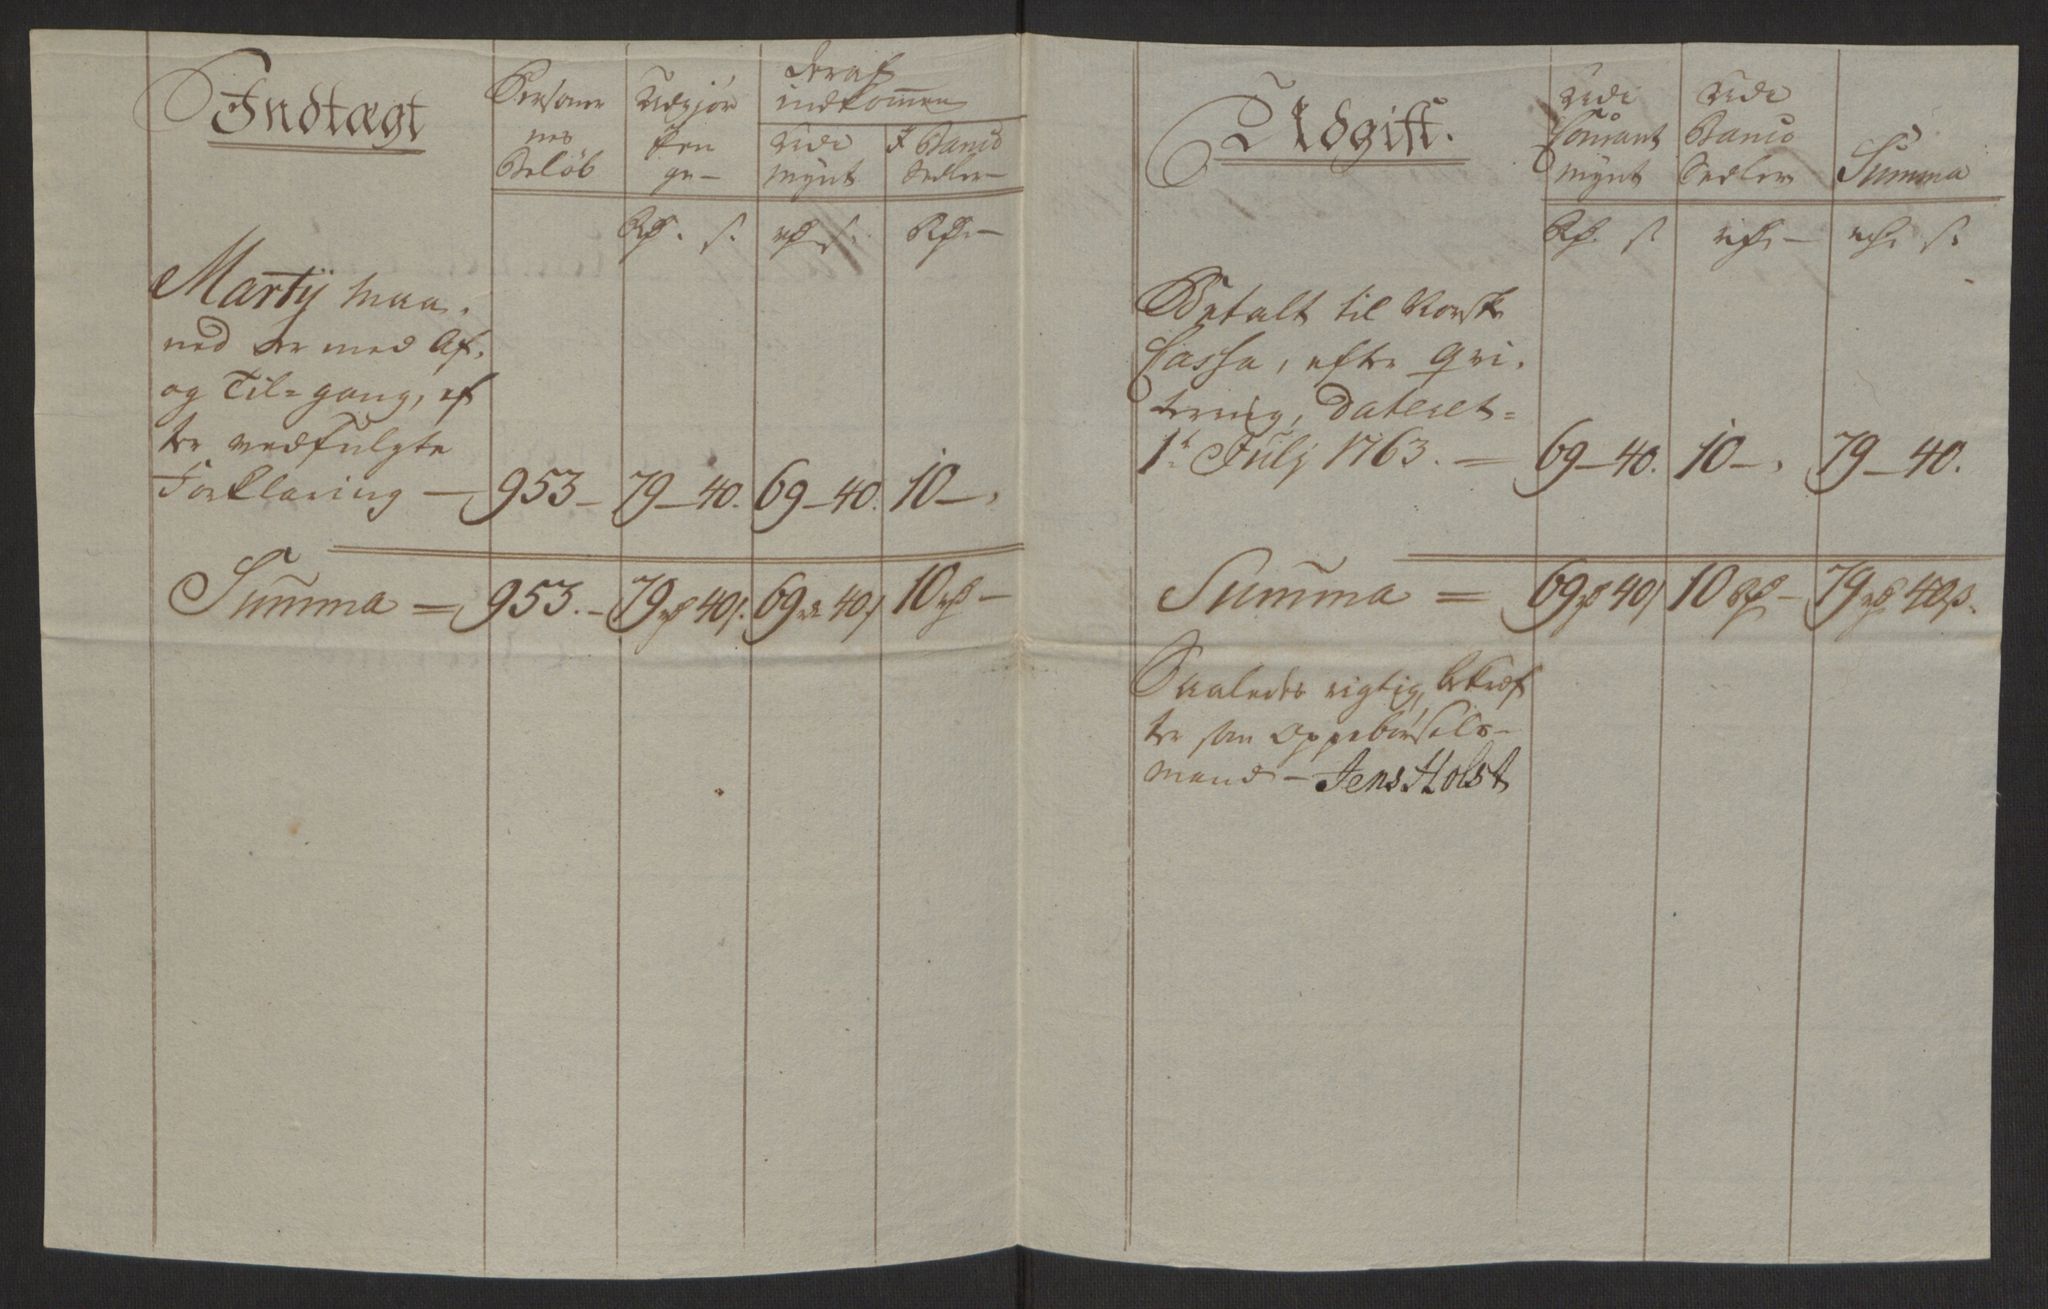 Indtægt
Persone
nes
Beløb
Udgjør
Pen
ge
deraf
indkommen
Udi
mynt
I Banco
Sedler
Rd. s.
rd. s.
Rd.
Martij maa-
ned er med Af-
og Til=gang, ef
ter vedfulgte
Forklaring — 953 — 79 — 40. 69 — 40. 10 —
Summa = 953. — 79 rd 40 s. 69 rd 40 s 10 rd —
Udgift.
Udi
Courant
mynt
Udi
Banco
Sedler
Summa
Rd. s.
rd. —
rd. s.
Betalt til Norske
Cassa, efter Qvi-
tering, Dateret=
1t Julj 1763. — 69 — 40. 10 — 79 — 40.
Summa = 69 rd 40 s 10 Rd — 79 rd 40 s.
Saaledes rigtig, bekræf
ter som Oppebørsels-
mand — Jens Holst